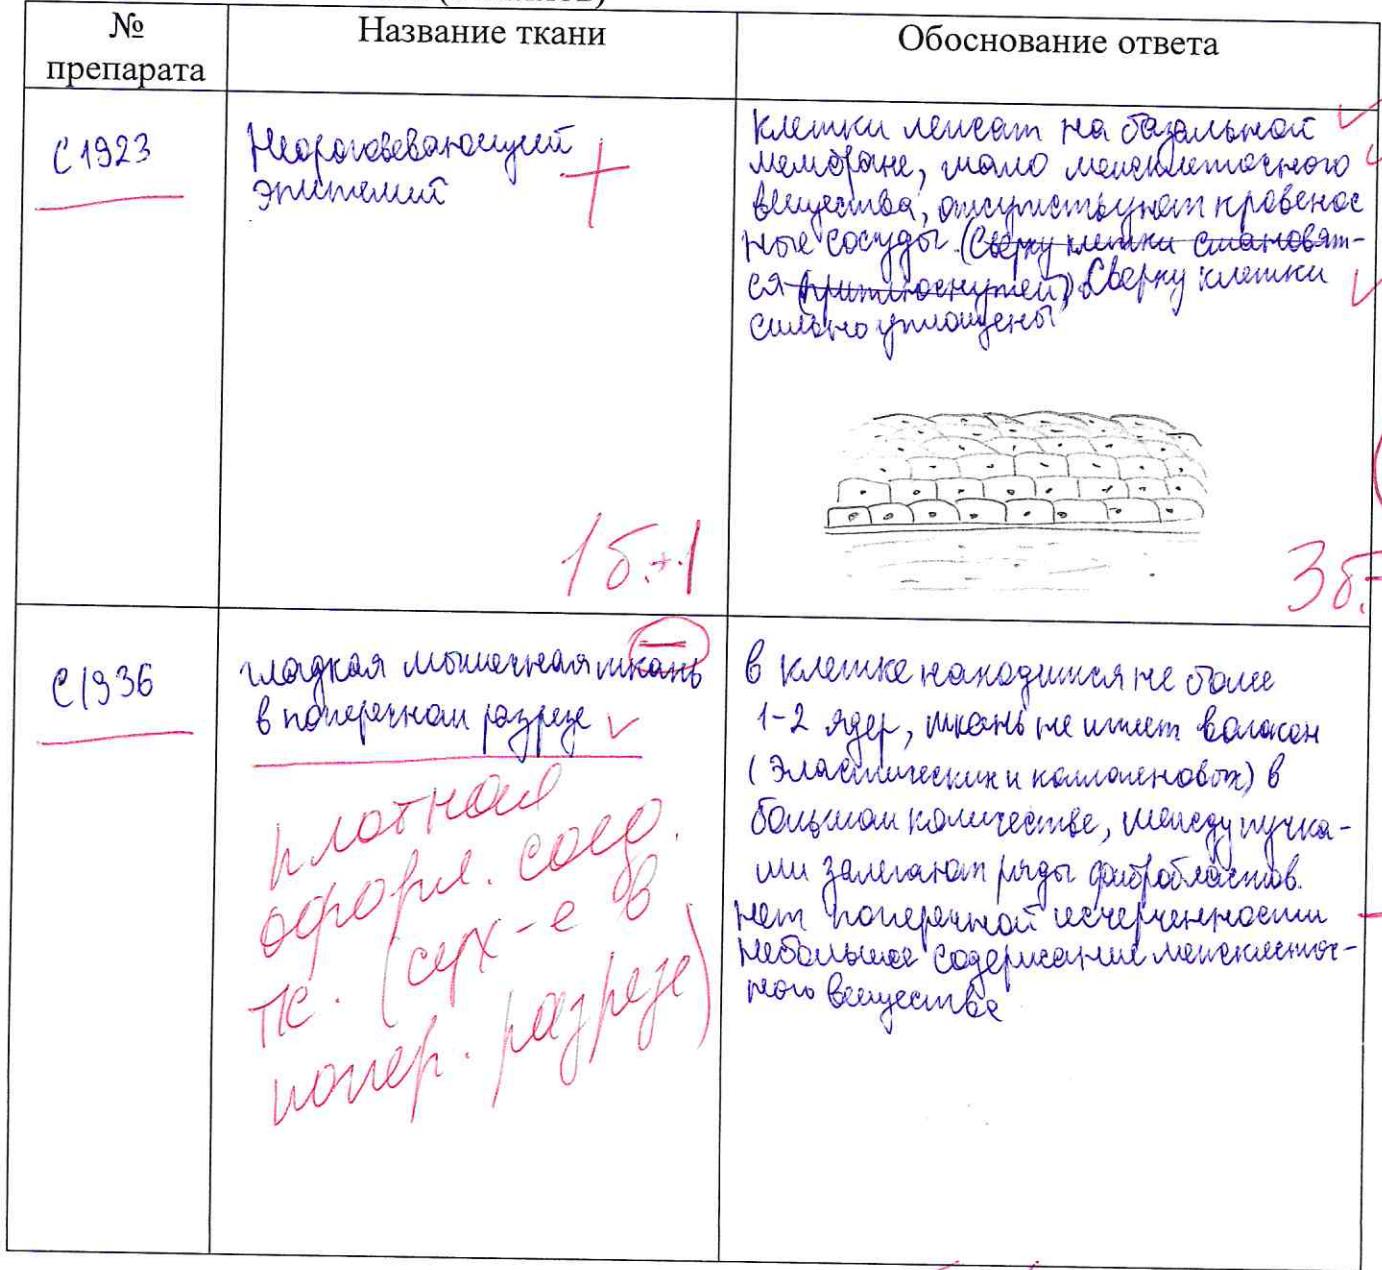 №
препарата
Название ткани
Обоснование ответа
С1923
Неороговевающий
эпителий
+
клетки лежат на базальной
мембране, мало межклеточного
вещества, отсутствуют кровенос
ные сосуды. (Сверху клетки становят-
ся приплюснутей) Сверху клетки
сильно уплощены
1б.+1
3б.
С1936
гладкая мышечная ткань
в поперечном разрезе
плотная
оформ. соед.
тк. (сух-е в
попер. разрезе)
в клетке находится не более
1-2 ядер, ткань не имеет волокон
(эластических и коллагеновых) в
большом количестве, между пучка-
ми залегают ряды фибробластов.
нет поперечной исчерченности
небольшое содержание межклеточ-
ного вещества